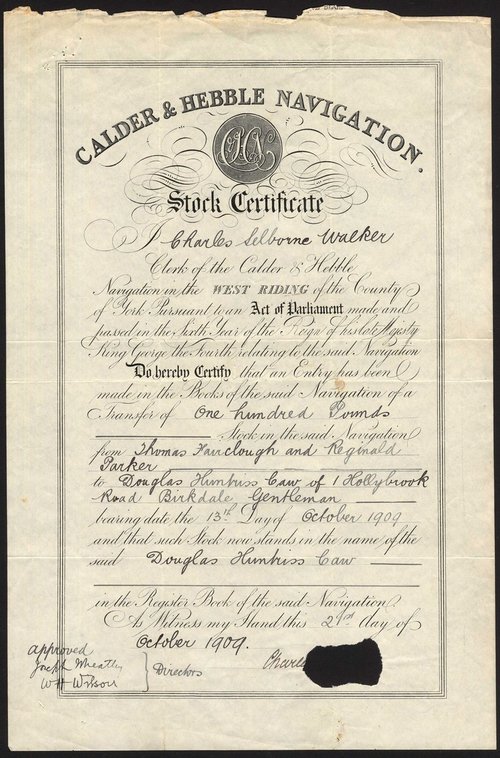 CALDER & HEBBLE NAVIGATION.
CHN
Stock Certificate
I Charles Selborne Walker
Clerk of the Calder & Hebble
Navigation in the WEST RIDING of the County
of York Pursuant to an Act of Parliament made and
passed in the Sixth Year of the Reign of his late Majesty
King George the Fourth relating to the said Navigation
Do hereby Certify that an Entry has been
made in the Books of the said Navigation of a
Transfer of One hundred Pounds
Stock in the said Navigation
from Thomas Fairclough and Reginald
Parker
to Douglas Huntriss Caw of 1 Hollybrook
Road Birkdale Gentleman
bearing date the 13th Day of October 1909
and that such Stock now stands in the name of the
said Douglas Huntriss Caw
in the Register Book of the said Navigation.
As Witness my Hand this 21st day of
October 1909.
approved
Joseph Wheatley
WH Wilson
Directors
Charles